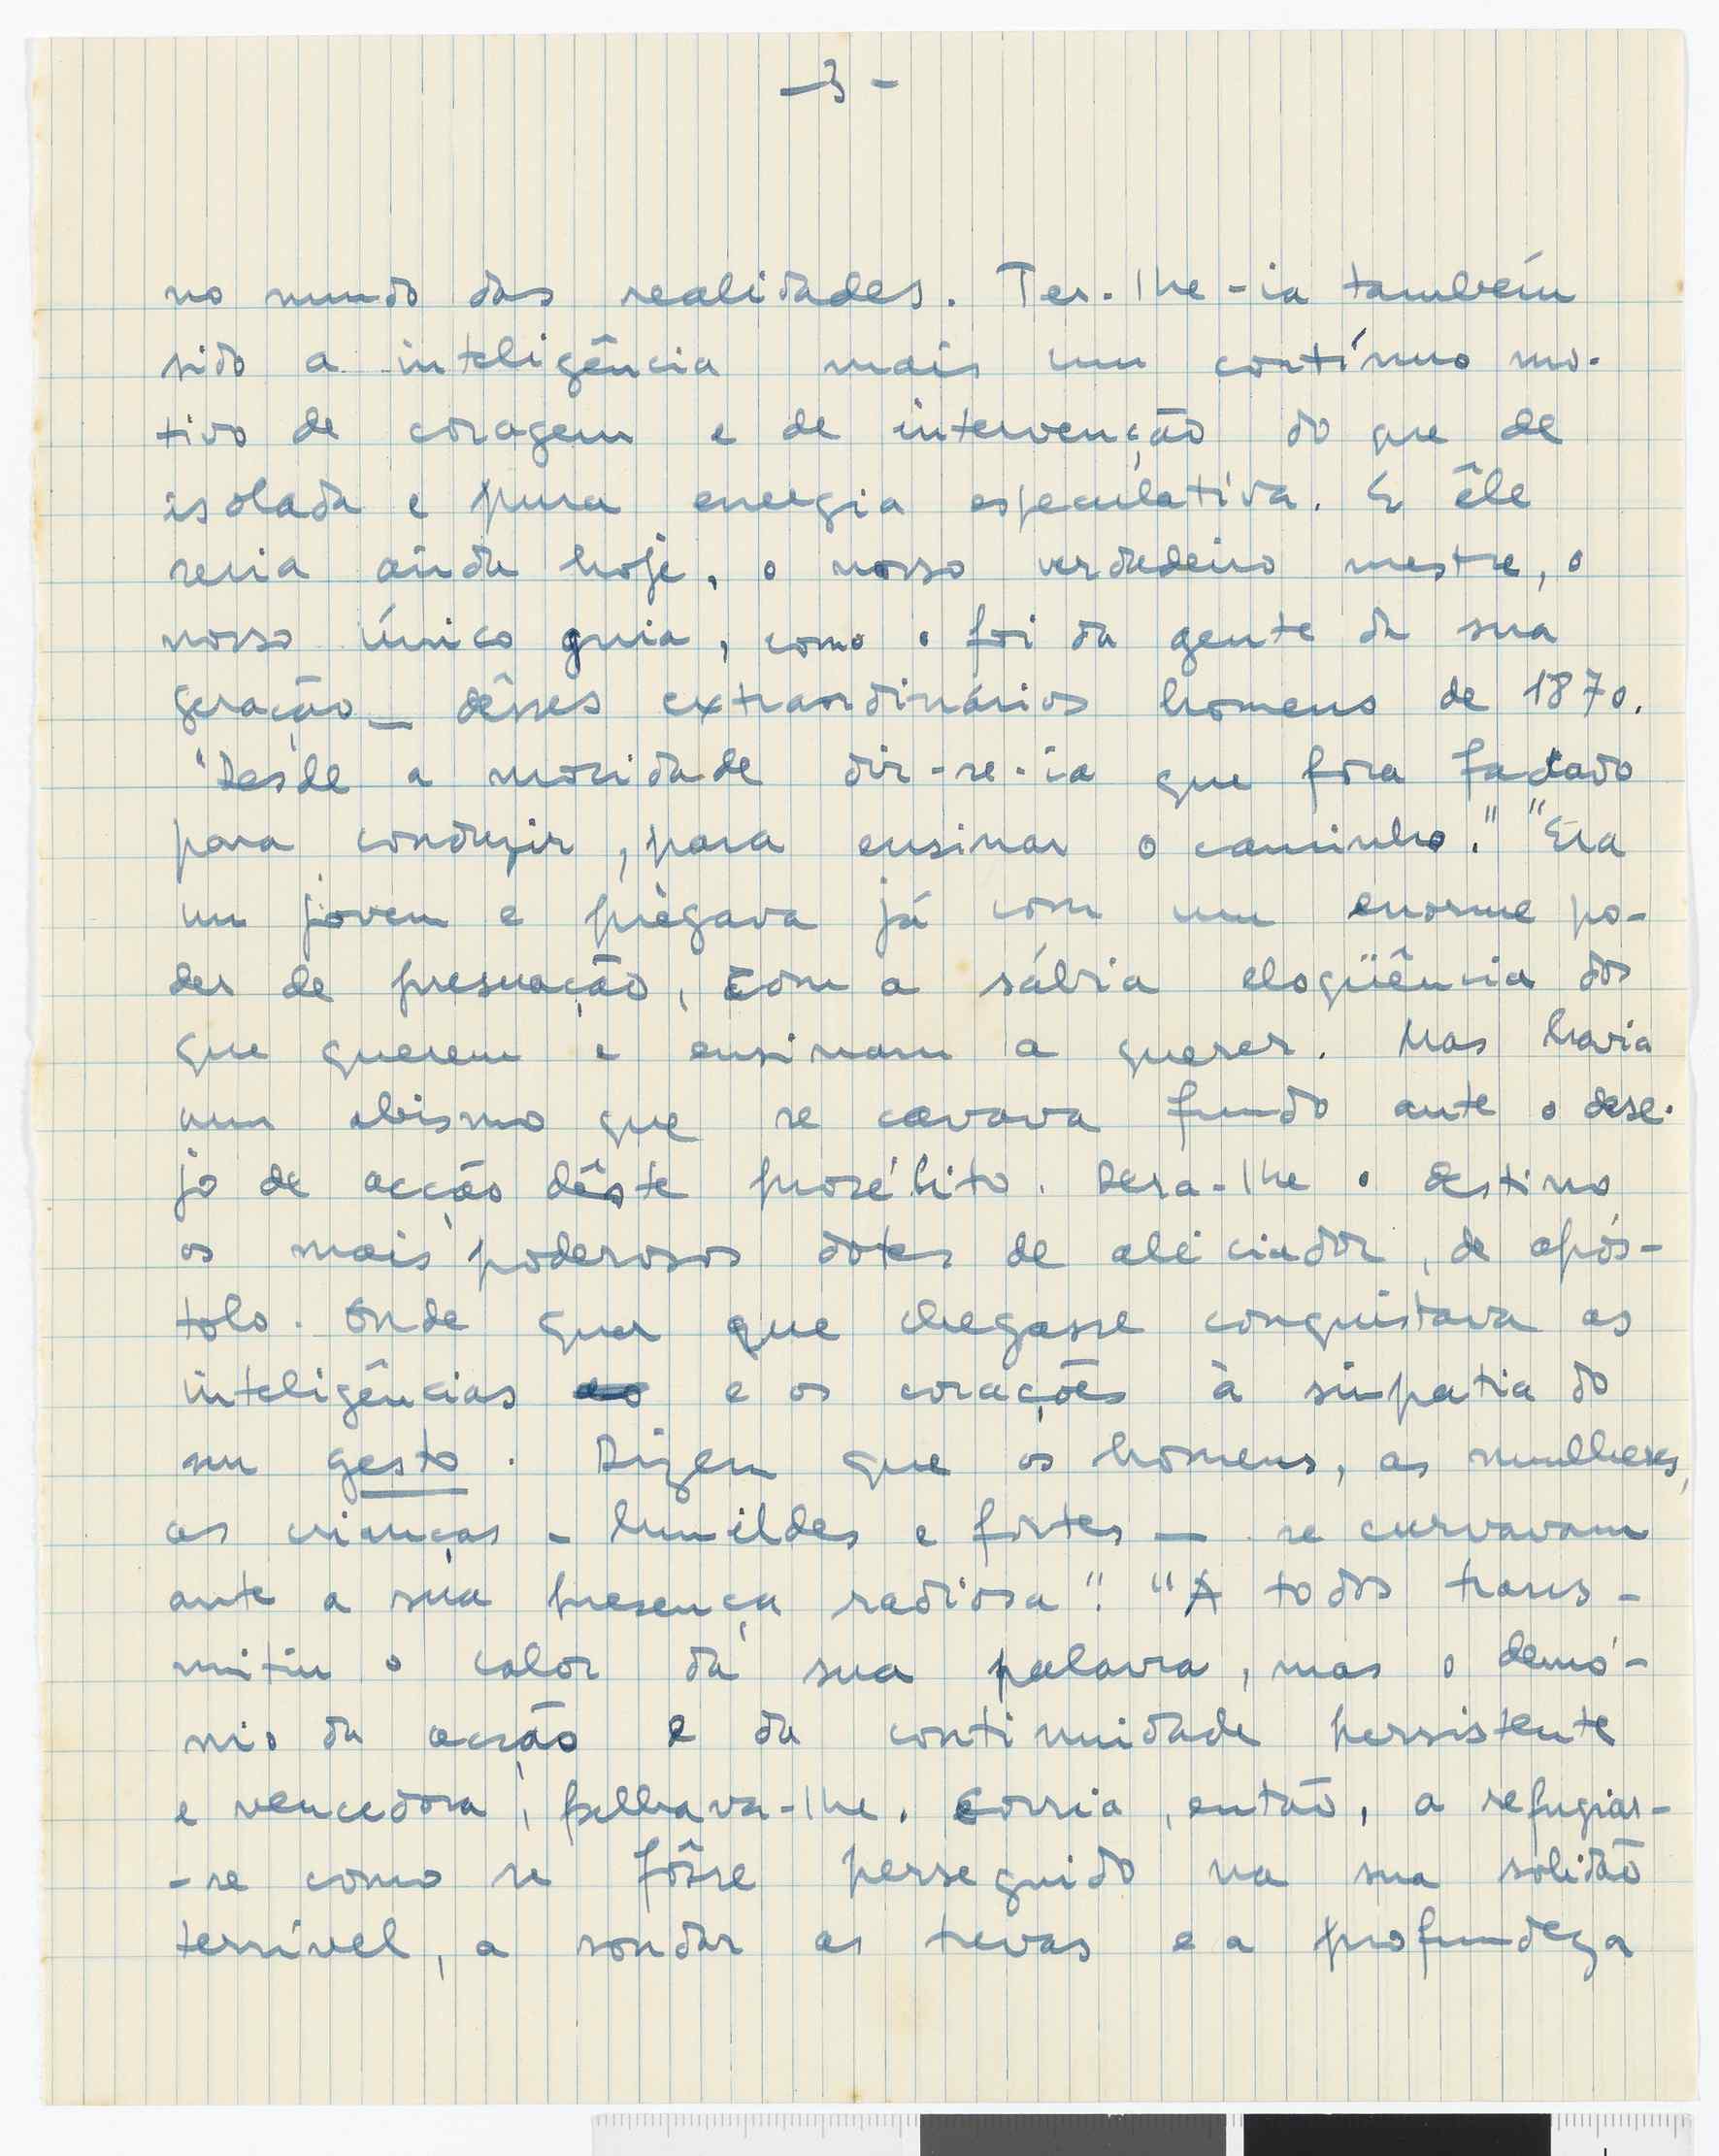 — 3 -
no mundo das realidades. Ter-lhe-ia também
sido a inteligência mais um contínuo mo-
tivo de coragem e de intervenção do que de
isolada e pura energia especulativa. E êle
seria ainda hoje, o nosso verdadeiro mestre, o
nosso único guia, como o foi da gente da sua
geração — dêsses extraordinários homens de 1870.
"Desde a mocidade dir-se-ia que fôra fadado
para conduzir, para ensinar o caminho." "Era
um jovem e prègava já com um enorme po-
der de presuação, com a sábia eloqüência dos
que querem e ensinam a querer. Mas havia
um abismo que se cavava fundo ante o dese-
jo de acção dêste prosélito. Dera-lhe o destino
os mais poderosos dotes de aliciador, de após-
tolo. Onde quer que chegasse conquistava as
inteligências e os corações à simpatia do
seu gesto. Dizem que os homens, as mulheres,
as crianças - humildes e fortes — se curvavam
ante a sua presença radiosa". "A todos trans-
mitiu o calor da sua palavra, mas o demó-
nio da acção e da continuidade persistente
e vencedora, falhava-lhe. Corria, então, a refugiar-
-se como se fôsse perseguido na sua solidão
terrível, a sondar as trevas e a profundeza